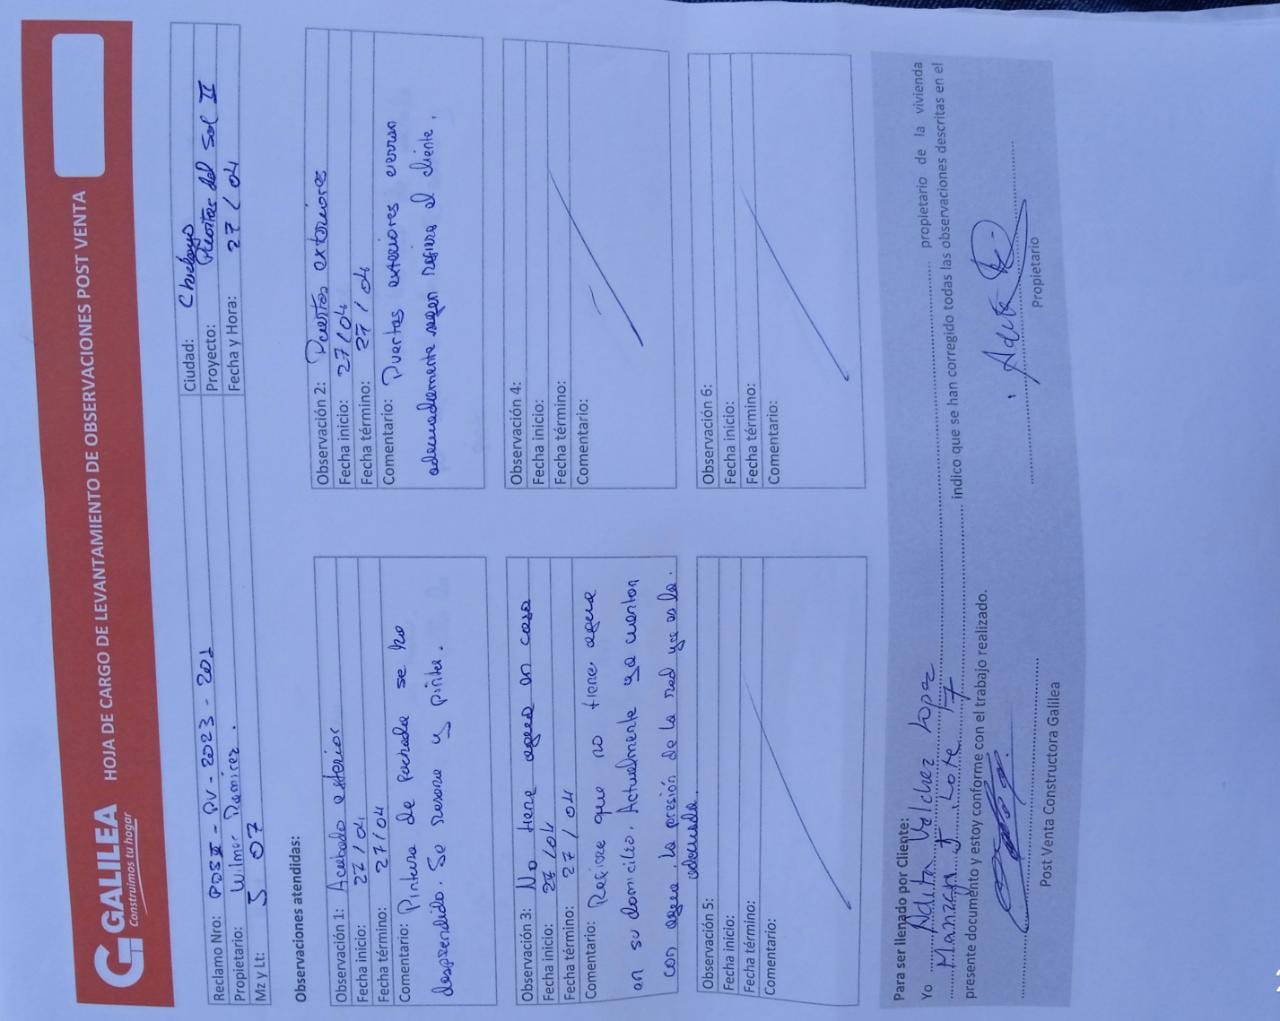 GALILEA
Construimos tu hogar
HOJA DE CARGO DE LEVANTAMIENTO DE OBSERVACIONES POST VENTA
Reclamo Nro: PDSII - PV - 2023 - 201
Propietario: Wilmer Ramirez.
Mz y Lt: J 07
Ciudad: Chiclayo
Proyecto: Puertas del Sol II
Fecha y Hora: 27 / 04
Observaciones atendidas:
Observación 1: Acabado exterior
Fecha inicio: 27 / 04
Fecha término: 27/04
Comentario: Pintura de fachada se ha
desprendido. Se resane y pinta.
Observación 2: Puertas exteriores
Fecha inicio: 27/04
Fecha término: 27 / 04
Comentario: Puertas exteriores cierran
adecuadamente segun refiere el cliente.
Observación 3: No tiene agua en casa
Fecha inicio: 27 /04
Fecha término: 27 / 04
Comentario: Refiere que no tiene agua
en su domicilio. Actualmente ya cuentan
con agua, la presión de la red ya es la
adecuada.
Observación 4:
Fecha inicio:
Fecha término:
Comentario:
Observación 5:
Fecha inicio:
Fecha término:
Comentario:
Observación 6:
Fecha inicio:
Fecha término:
Comentario:
Para ser llenado por Cliente:
Yo Vilchez Lopez propietario de la vivienda
Manzana J Lote 7 indico que se han corregido todas las observaciones descritas en el
presente documento y estoy conforme con el trabajo realizado.
Post Venta Constructora Galilea
Propietario